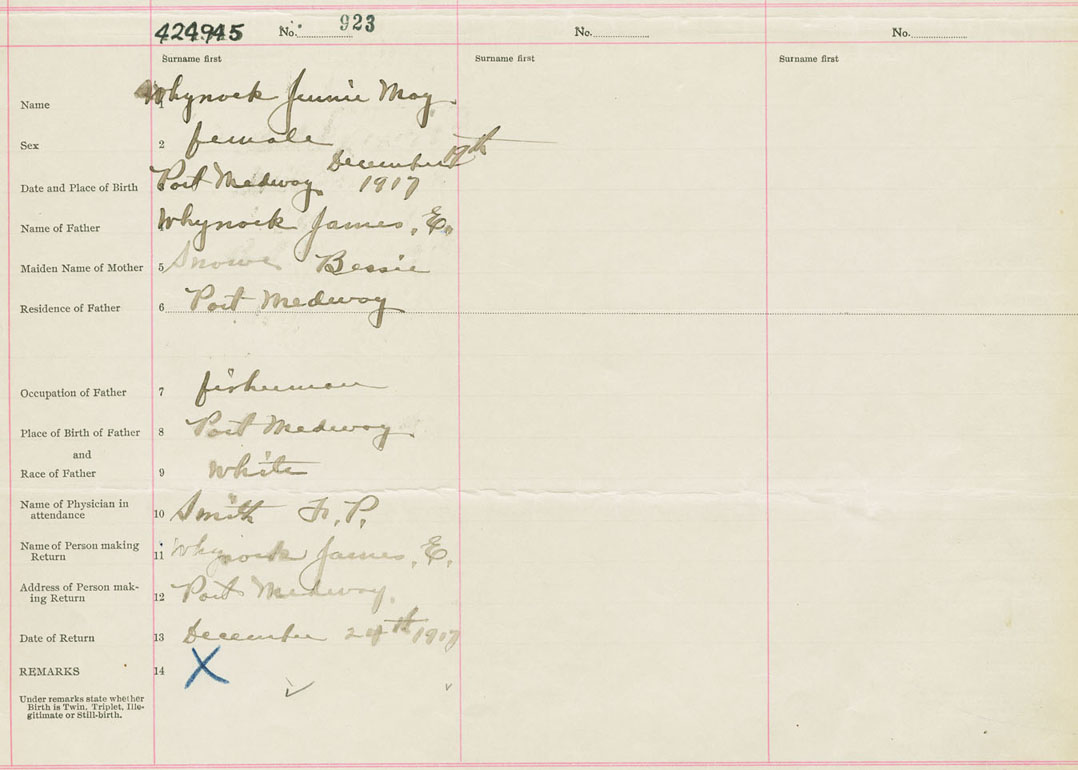 424945 No. 923 No. No.
Surname first Surname first Surname first
Name 1 Whynock Jennie May
Sex 2 female
December 17th
Date and Place of Birth Port Medway 1917
Name of Father Whynock James, E.
Maiden Name of Mother 5 Snowe Bessie
Residence of Father 6 Port Medway
Occupation of Father 7 fisherman
Place of Birth of Father 8 Port Medway
and
Race of Father 9 White
Name of Physician in
attendance 10 Smith F. P.
Name of Person making
Return 11 Whynock James, E.
Address of Person mak-
ing Return 12 Port Medway.
Date of Return 13 December 24th 1917
REMARKS 14 X
Under remarks state whether
Birth is Twin, Triplet, Ille-
gitimate or Still-birth.